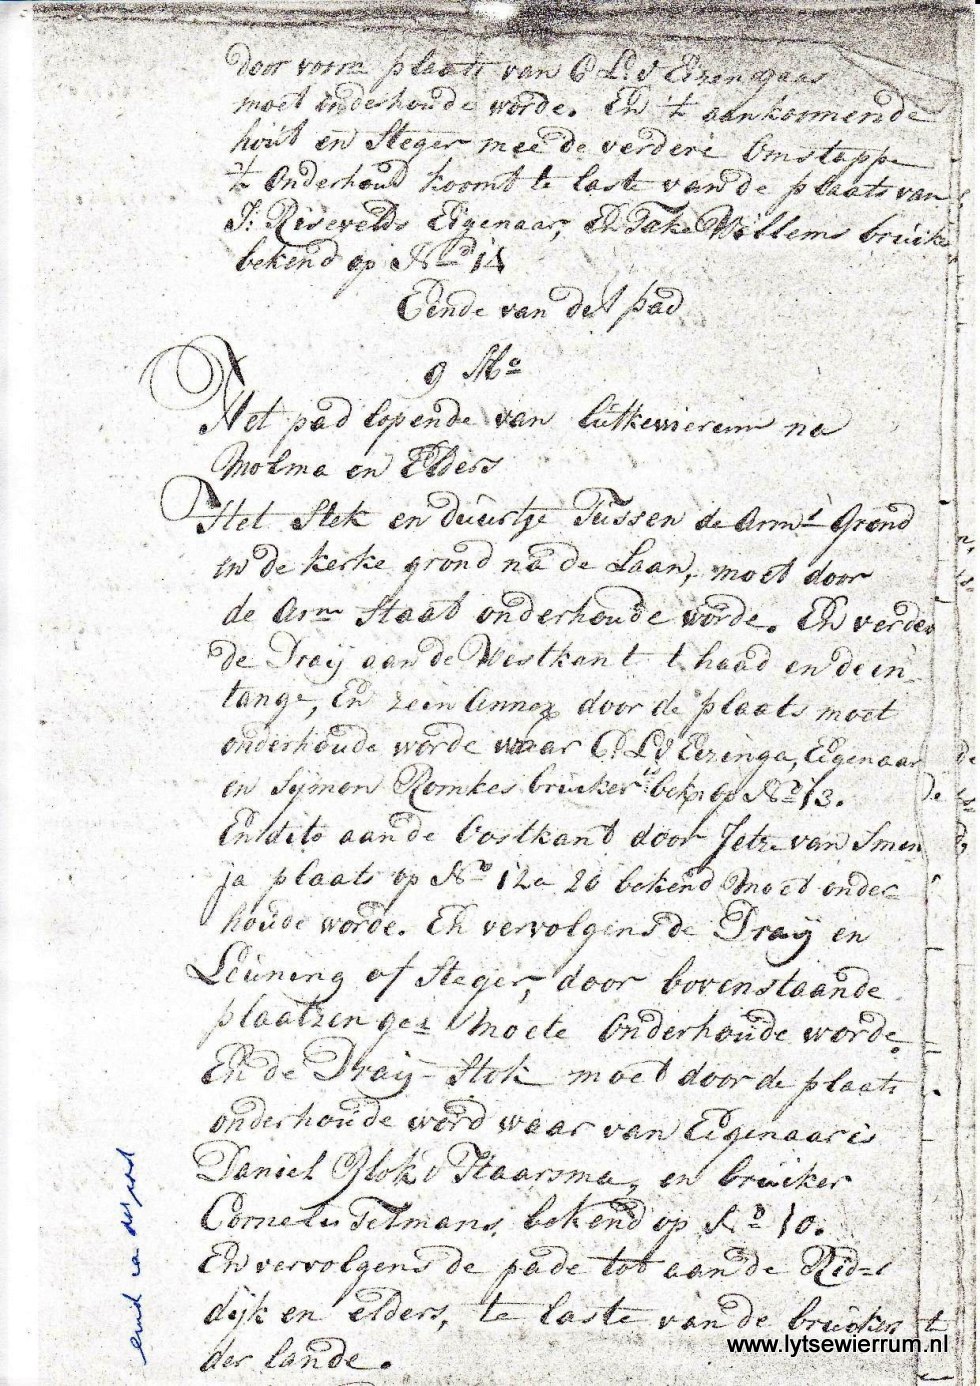 door vorm plaats van C L: V Eizengaas
moet onderhoude worde. En 't aankoomende
hout en Steger mee de verdere Omstappe
't Onderhoud koomt te laste van de plaats van
J: Risevelds Eigenaar, En Take Willems bruike
bekend op No 14
Eende van det pad
9 No
Het pad lopende van Lutkewierum na
Molma en Elders
Het Stek en duurtje Tussen de Arm Grond
en de kerke grond na de Laan, moet door
de Arm Staat onderhoude worde. En verder
de Draij aan de Westkant t haad en de in
tange, En zein Annex door de plaats moet
onderhoude worde waar C: L V Eezinga, Eigenaar
en Sijmon Romkes bruiker is bek: op No 13.
En dito aan de Oostkant door Jetze van Smin
ja plaats op No 12 a 20 bekend Moet onder
houde worde. En vervolgens de Draij en
Leuning of Steger, door bovenstaande
plaatzen gez Moete Onderhoude worde.
En de Draij-Stok moet door de plaats
onderhoude word waar van Eigenaar is
Daniel Blok V Haarsma, en bruiker
Cornelis Telmans, bekend op No 10.
En vervolgens de pade tot aan de Rid-
dijk en elders, te laste van de bruiker
der lande.
www.lytsewierrum.nl